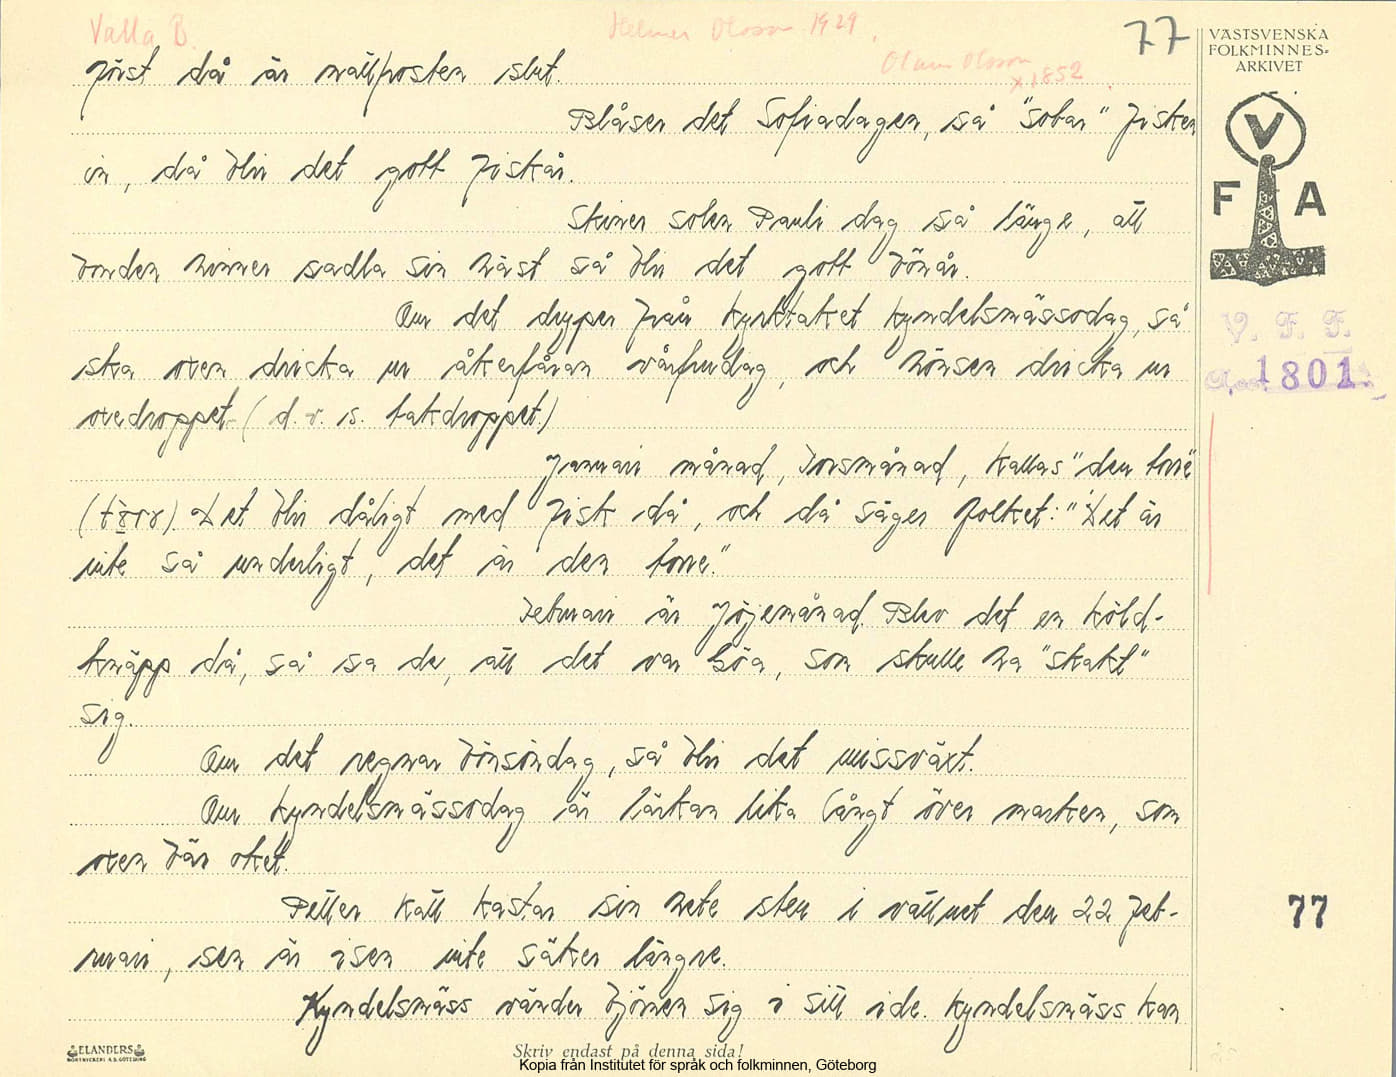 Valla B.
Helmer Olosson 1929.
77
VÄSTSVENSKA
FOLKMINNES-
ARKIVET
först då är nällfrosten slut.
Olaus Olsson
x 1852
Blåser det Sofiadagen, så "sobar" fisken
in, då blir det gott fiskår.
V
F A
Skiner solen Pauli dag så länge, att
bonden hinner sadla sin häst så blir det gott bönår.
Om det dryper från kyrktaket kyndelsmässodag, så
V. F. F.
ska oxen dricka ur åkerfåran vårfrudag, och hönsen dricka ur
1801.
ovedroppet (d.v.s. takdroppet.)
Januari månad, Torsmånad, kallas "den torre"
Det blir dåligt med fisk då, och då säger folket: "Det är
inte så underligt, det är den torre."
Februari är föjemånad. Blev det en köld-
knäpp då, så sa de, att det var Göa, som skulle ha "skakt"
sig.
Om det regnar bönsöndag, så blir det missväxt.
Om kyndelsmässodag är lärkan lika långt över marken, som
oxen bär oket.
Petter Katt kastar sin hete sten i vattnet den 22 feb-
77
ruari, sen är isen inte säker längre.
Kyndelsmäss vänder björnen sig i sitt ide. Kyndelsmäss kan
ELANDERS
Skriv endast på denna sida!
Kopia från Institutet för språk och folkminnen, Göteborg